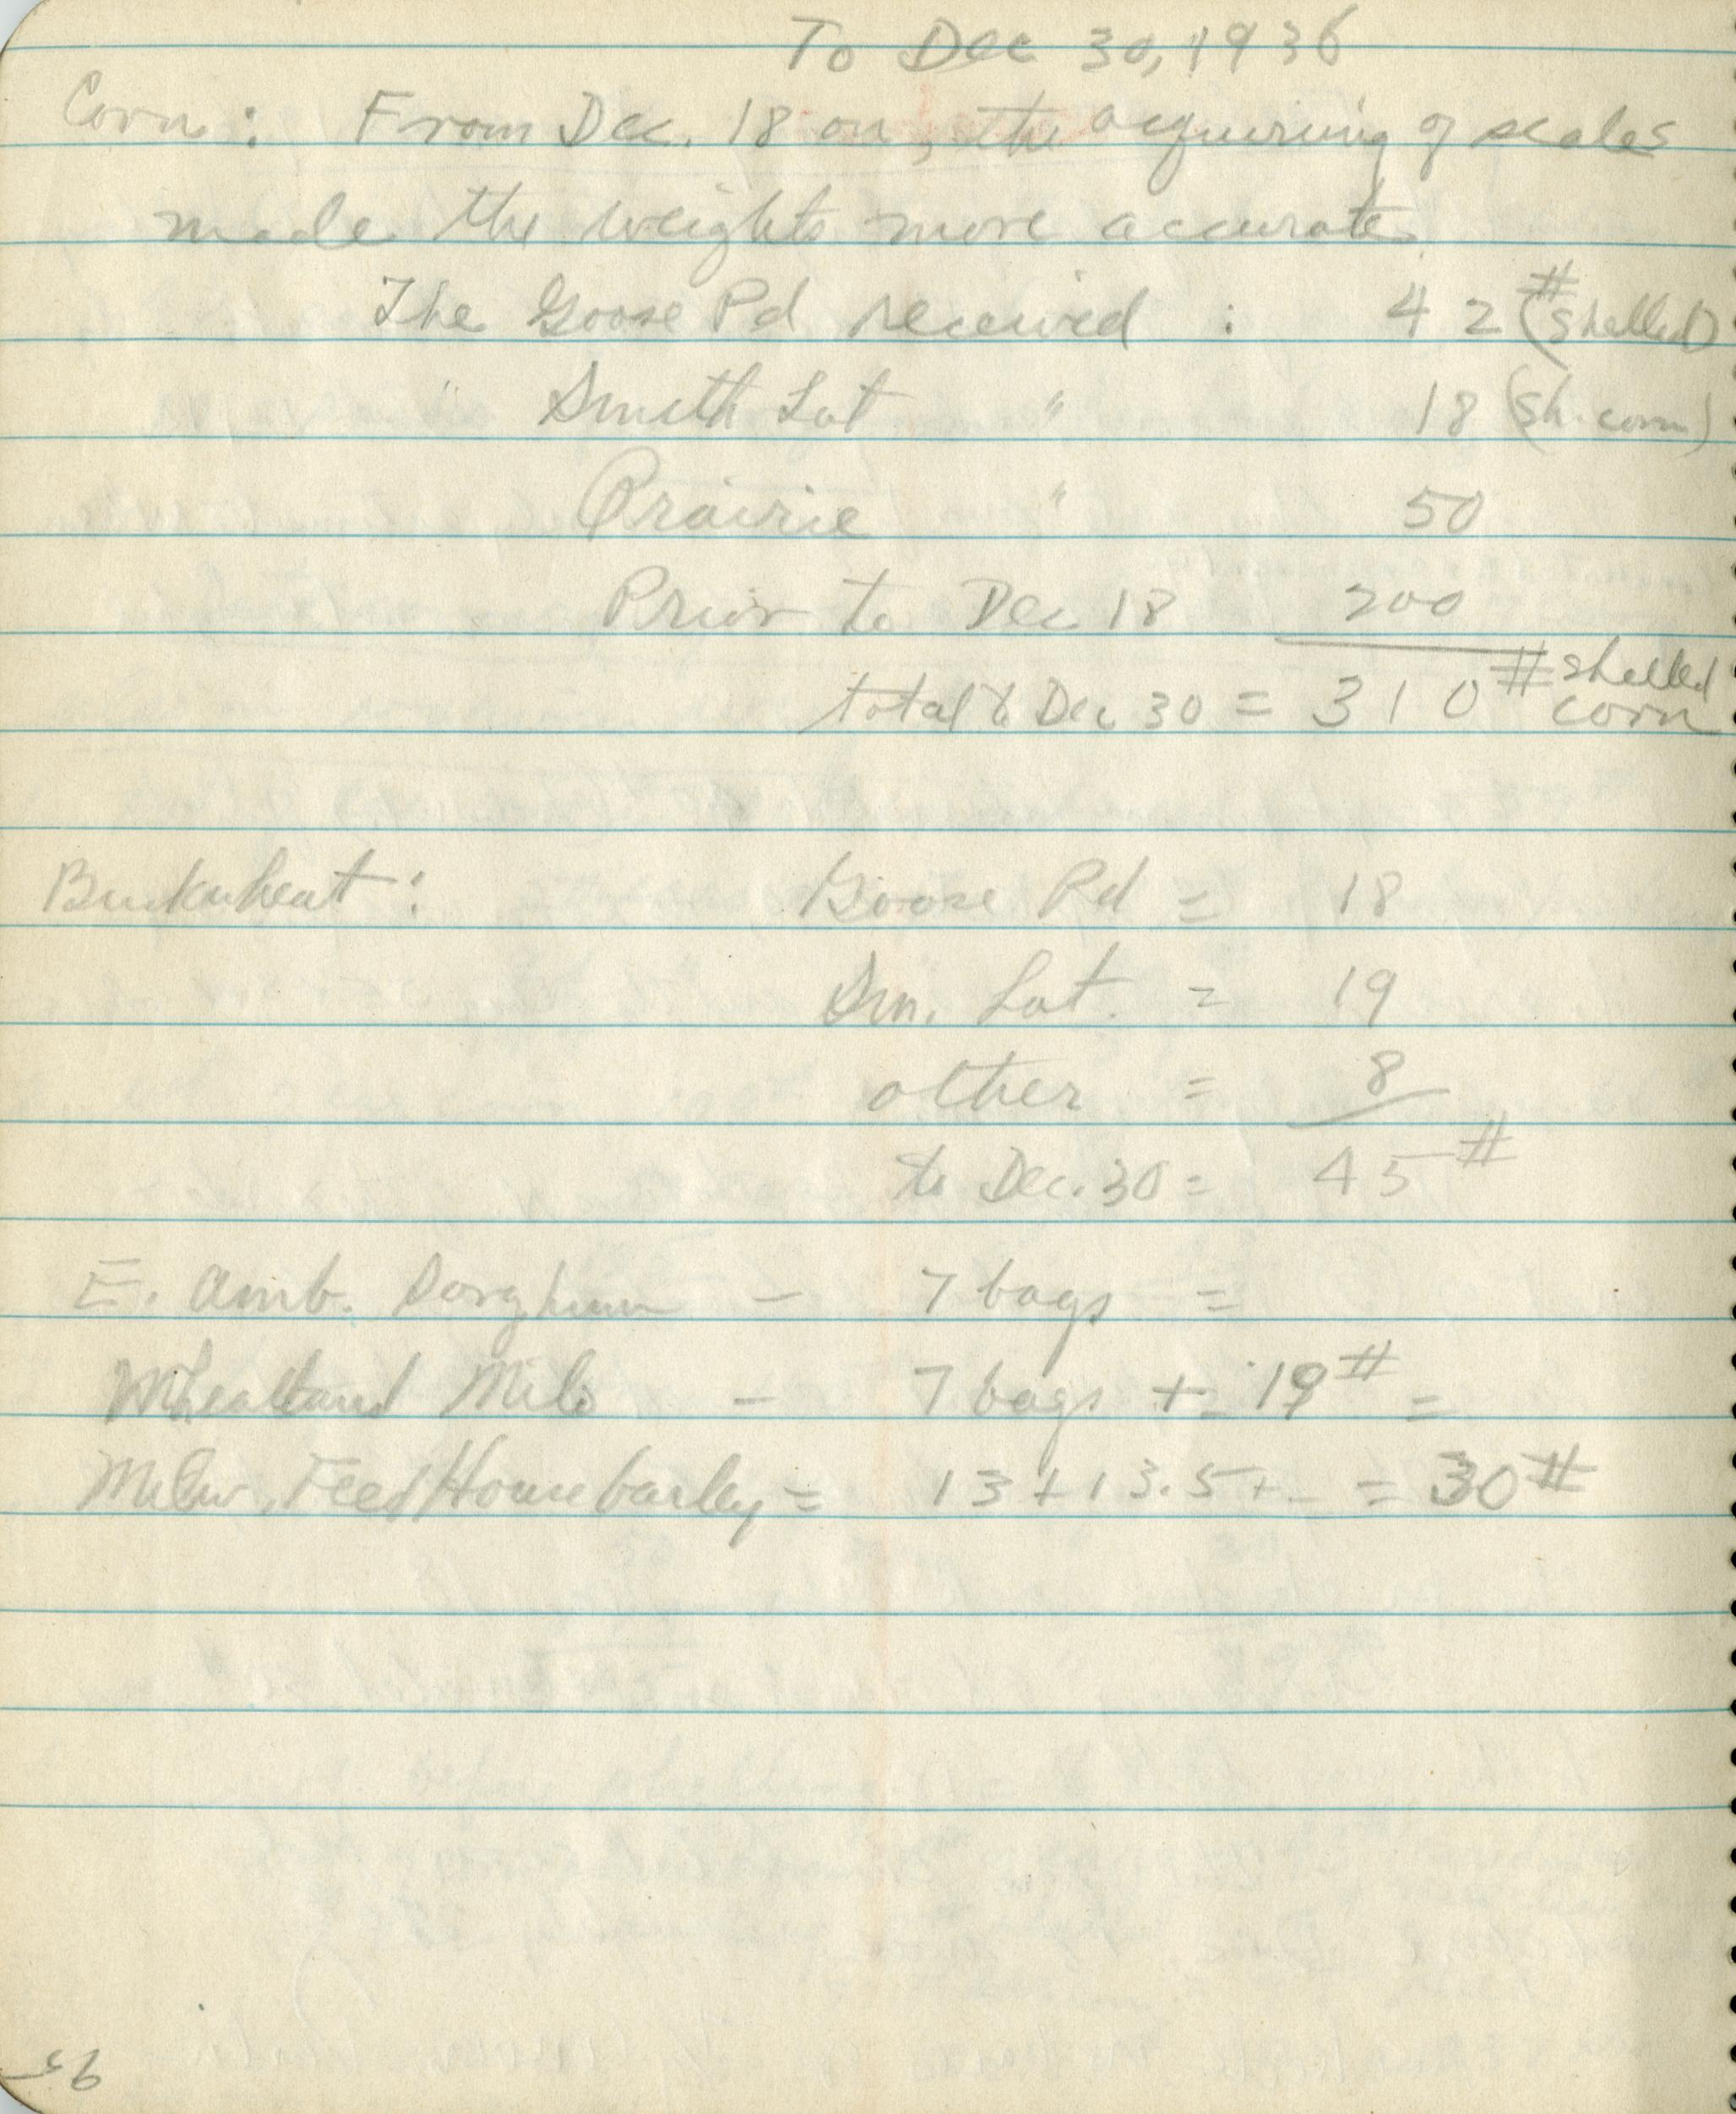 To Dec 30, 1936
Corn: From Dec. 18 on, the acquiring of scales
made the weights more accurate.
The Goose Pd received : 42# (shelled)
" Smith Lot " 18 (sh. corn)
Prairie " 50
Prior to Dec 18 200
total to Dec 30 = 310# shelled corn
Buckwheat: Goose Pd = 18
Sm. Lot. = 19
other = 8
to Dec. 30 = 45#
E. Amb. Sorghum - 7 bags =
Wheatland Milo - 7 bags + 19# =
Milw. Feed House barley = 13 + 13.5 + = 30#